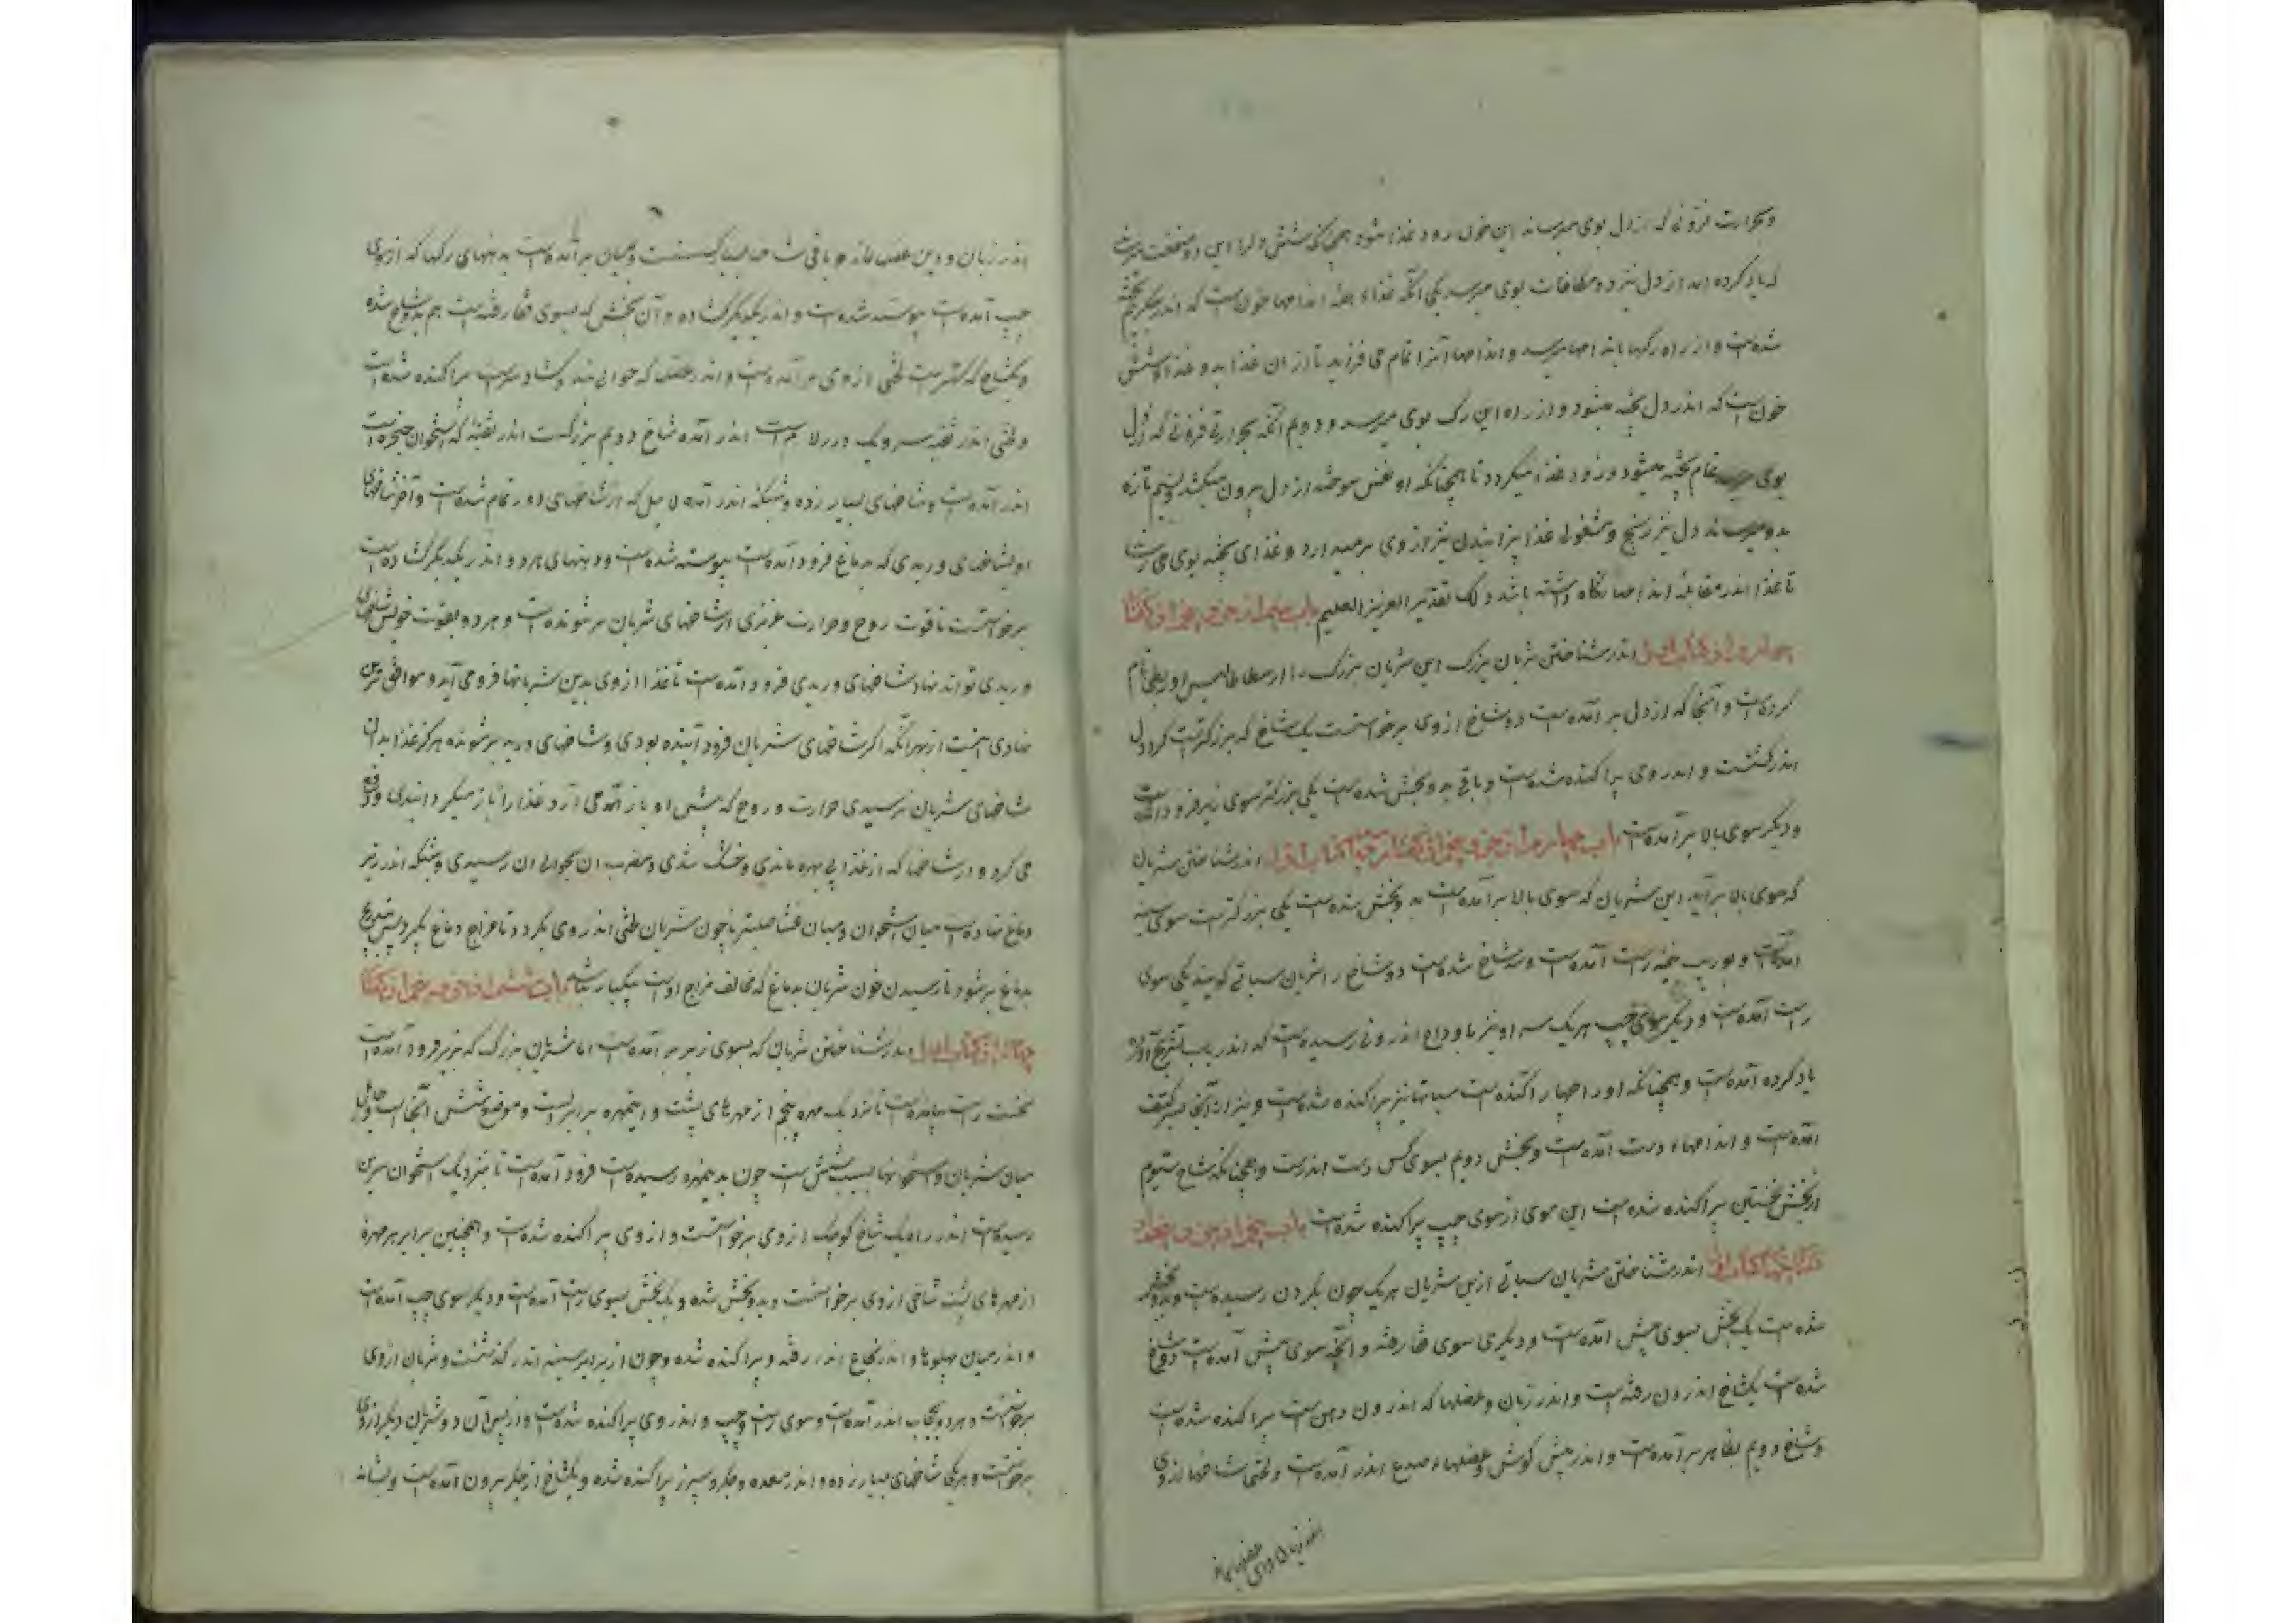 و حرارت فزونی که از دل بوی میرساند این خون زود غذا شود همچنانکه شش دل را این دو منفعت
که یاد کرده آمد از دل نیز دو مکافات بوی میرسد یکی آنکه غذاء همه اندامها خونست که اندر جگر پخته
شده‌ست و از راه رگها باندامها میرسد و اندامها آنرا تمام می فزاید تا از آن غذا یابد و غذاء شش
خون‌ست که اندر دل پخته میشود و از راه این رگ بوی میرسد و دویم آنکه بحرارتی فزونی که از دل
بوی میرسد تمام پخته میشود و زود غذا میگردد تا همچنانکه او نفس سوخته از دل بیرون میکشد و نسیم تازه
بدو میرساند دل نیز رنج و مشغولی غذا پزانیدن نیز از وی برمیدارد و غذای پخته بوی
تا غذا اندر مقابله اندامها نگاه داشته باشد ذلک تقدیر العزیز العلیم باب سیم از جزو پنجم از گفتار
چهارم از کتاب اول اندر شناختن شریان بزرگ این شریان بزرگ را ارسطاطالیس اورطی نام
کرده‌ست و آنجا که از دل برآمده‌ست دو شاخ از وی برخواستست یک شاخ که بزرگترست گرد دل
اندر گشتست و اندر وی پراکنده شده‌ست و باقی بدو بخش شده‌ست یکی بزرگتر سوی زیر فرود آمده‌ست
و دیگر سوی بالا برآمده‌ست باب چهارم از جزو پنجم از گفتار چهارم از کتاب اول اندر شناختن شریان
که سوی بالا برآید این شریان که سوی بالا برآمده‌ست بدو بخش شده‌ست یکی بزرگترست سوی سینه
آمدست و بوریب سوی راست آمده‌ست و سه شاخ شده‌ست دو شاخ را شریان سباتی گویند یکی سوی
راست آمده‌ست و دیگر سوی چپ هر یک بس او نیز با وداج اندرونی رسیده‌ست که اندر باب تشریح آورده
یاد کرده آمده‌ست و همچنانکه اوراجها پراکنده‌ست سباتیها نیز پراکنده شده‌ست و نیز از آنجا بسر کتف
آمده‌ست و اندامهاء دست آمده‌ست و بخش دویم بسوی کس دست اندرست و همچنانکه شاخ سیوم
از بخش نخستین پراکنده شده‌ست این سوی از سوی چپ پراکنده شده‌ست باب پنجم از جزو پنجم از
گفتار چهارم از کتاب اول اندر شناختن شریان سباتی ازین شریان هر یک چون بگردن رسیده‌ست و بدو بخش
شده‌ست یک بخش بسوی پیش آمده‌ست و دیگری سوی قفا رفته و آنچه سوی پیش آمده‌ست دو شاخ
شده‌ست یکشاخ اندرون رفته‌ست و اندر زبان و عضلها که اندرون دهن‌ست پراکنده شده‌ست
و شاخ دویم بظاهر برآمده‌ست و اندر پیش گوش و عضلهاء صدغ اندر آمده‌ست و لختی شاخها از وی
اندر زبان و این عضلها
اندر زبان و دین عضلها ماند و باقی شاخها میان برآمده‌ست بنهنهای رگها که از سوی
چپ آمده‌ست پیوسته شده‌ست و اندر یکدیگر گشاده و آن بخش که بسوی قفا رفته‌ست هم بدو شاخ شده
و یکشاخ که کهترست لختی از وی برآمده‌ست و اندر عضلها که حوالی بند گشاد سرست پراکنده شده‌ست
و لختی اندر ثقبه سر و یک درز لامی‌ست اندر آمده شاخ دویم بزرگست اندر ثقبه که استخوان حجریست
اندر آمده‌ست و شاخهای بسیار زده و شبکه اندر آمده لا بل که از شاخهای او تمام شده‌ست و آخر شاخهای
او بشاخهای وریدی که بدماغ فرود آمده‌ست پیوسته شده‌ست و دهنهای هر دو اندر یکدیگر گشاده‌ست
برخواستست تا قوت روح و حرارت غریزی از شاخهای شریان برشونده‌ست و هر دو بقوت خویش شاخهای
وریدی تواند نهاد شاخهای وریدی فرود آمده‌ست تا غذا از وی بدین شریانها فرو می آید و موافق ترین
نهادی اینست از بهر آنکه اگر شاخهای شریان فرود آینده بودی و شاخهای ورید برشونده هرگز غذا بدان
شاخهای شریان نرسیدی حرارت و روح که پیش او باز آمدی آن غذا را باز میگردانیدی و دفع
می کردو در شاخها که از غذا بی بهره ماندی و خشک شدی و مضرت آن بحوالی آن رسیدی و شبکه اندر زیر
دماغ نهاده‌ست میان استخوان و میان غشاء صلبتر تا چون شریان لختی اندر وی بگردد تا مزاج دماغ گیرد پس بتدریج
بدماغ برشود تا رسیدن خون شریان بدماغ که مخالف مزاج اوست بیکبار نباشد باب ششم از جزو پنجم از گفتار
چهارم از کتاب اول اندر شناختن شریان که بسوی زیر برآمده‌ست اما شریان بزرگ که بزیر فرود آمده‌ست
نخست راست بیامده‌ست تا نزدیک مهره پنجم از مهرهای پشت و این مهره برابر دلست و موضع شش آنجاست و حایل
میان شریان و استخوانها بسبب شش‌ست چون بدین مهره رسیده‌ست فرود آمده‌ست تا بنزدیک استخوان سرین
رسیده‌ست اندر راه یک شاخ کوچک از وی برخواستست و از وی پراکنده شده‌ست و همچنین برابر هر مهره
از مهرهای پشت شاخی از وی برخواستست و بدو بخش شده و یک بخش بسوی راست آمده‌ست و دیگر سوی چپ آمده‌ست
و اندر میان پهلوها و اندر نخاع اندر رفته و پراکنده شده و چون از برابر سینه اندر گذشتست و شریان از وی
برخواستست و هر دو بحجاب اندر آمده‌ست و سوی راست و چپ و اندر وی پراکنده شده‌ست و از پس آن دو شریان دیگر از وی
برخواستست و هر یکی شاخهای بسیار زده و اندر معده و جگر و سپرز پراکنده شده و یکشاخ از جگر بیرون آمده‌ست و بشانه